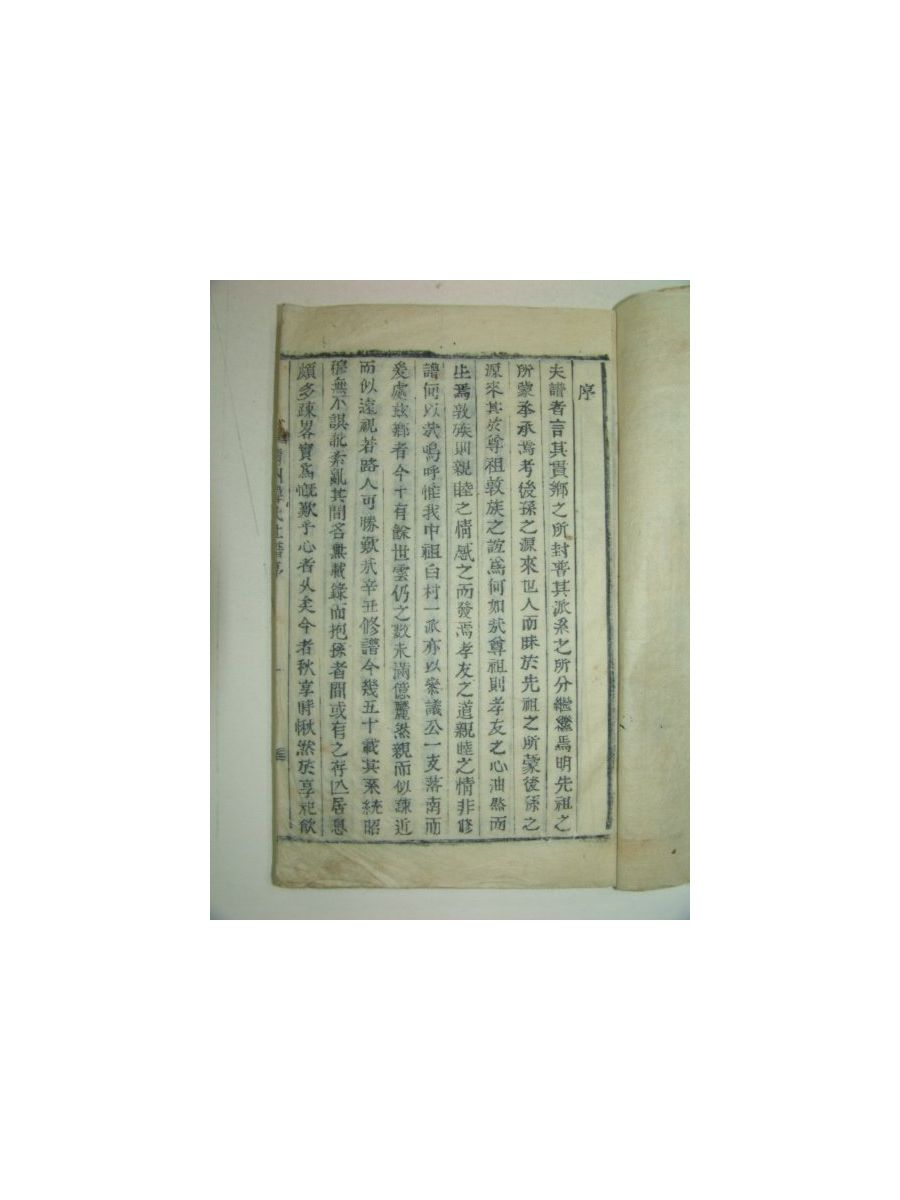 序
夫譜者言其貫鄉之所封菩其派系之所分繼繼焉明先祖之
所蒙承承焉考後孫之源來世人南昧於先祖之所蒙後孫之
源來其於尊祖敦族之誼爲何如哉尊祖則孝友之心油然而
生焉敦族則親睦之情感之而發焉孝友之道親睦之情非修
譜何以哉嗚呼惟我中祖白村一派亦以叅議公一支落南而
爰處玆鄉者今十有餘世雲仍之數未滿億麗然親而似疎近
而似遠視若路人可勝歎哉辛丑修譜今幾五十載其系統昭
穆無不誤批紊亂其間各無載錄而抱孫者間或有之存亡居息
頗多疎畧實爲慨歎乎心者久矣今者秋享時愀然於享祀飮
氏世譜序